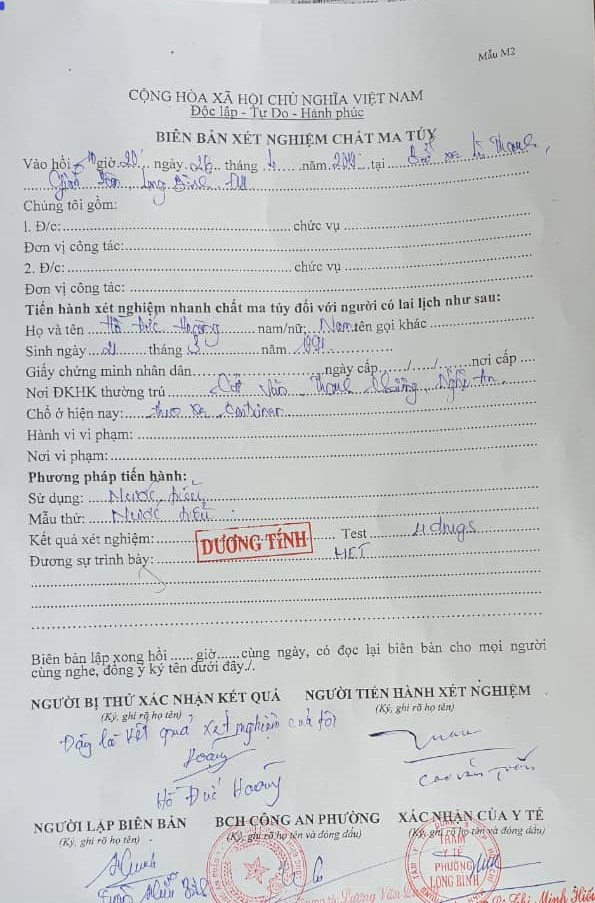 Mẫu M2
CỘNG HÒA XÃ HỘI CHỦ NGHĨA VIỆT NAM
Độc lập - Tự Do - Hành phúc
BIÊN BẢN XÉT NGHIỆM CHẤT MA TÚY
Vào hồi giờ 20 ngày 26 tháng 4 năm 2019 tại
Long Bình
Chúng tôi gồm:
1. Đ/c: chức vụ
Đơn vị công tác:
2. Đ/c: chức vụ
Đơn vị công tác:
Tiến hành xét nghiệm nhanh chất ma túy đối với người có lai lịch như sau:
Họ và tên Hồ Đức Hoàng nam/nữ: Nam tên gọi khác
Sinh ngày 21 tháng 3 năm 1991
Giấy chứng minh nhân dân ngày cấp / / nơi cấp
Nơi ĐKHK thường trú Nghệ An
Chổ ở hiện nay: theo xe Container
Hành vi vi phạm:
Nơi vi phạm:
Phương pháp tiến hành:
Sử dụng: Nước tiểu
Mẫu thử: Nước tiểu
Kết quả xét nghiệm: DƯƠNG TÍNH Test 4 drugs
Đương sự trình bày: MET
Biên bản lập xong hồi giờ cùng ngày, có đọc lại biên bản cho mọi người
cùng nghe, đồng ý ký tên dưới đây./.
NGƯỜI BỊ THỬ XÁC NHẬN KẾT QUẢ NGƯỜI TIẾN HÀNH XÉT NGHIỆM
(Ký, ghi rõ họ tên) (Ký, ghi rõ họ tên)
Đây là kết quả xét nghiệm của tôi
Hoàng
Hồ Đức Hoàng
NGƯỜI LẬP BIÊN BẢN BCH CÔNG AN PHƯỜNG XÁC NHẬN CỦA Y TẾ
(Ký, ghi rõ họ tên) (Ký, ghi rõ họ tên và đóng dấu) (Ký, ghi rõ họ tên và đóng dấu)
TRẠM
Y TẾ
PHƯỜNG
LONG BÌNH
Lương Văn
Minh Hiếu